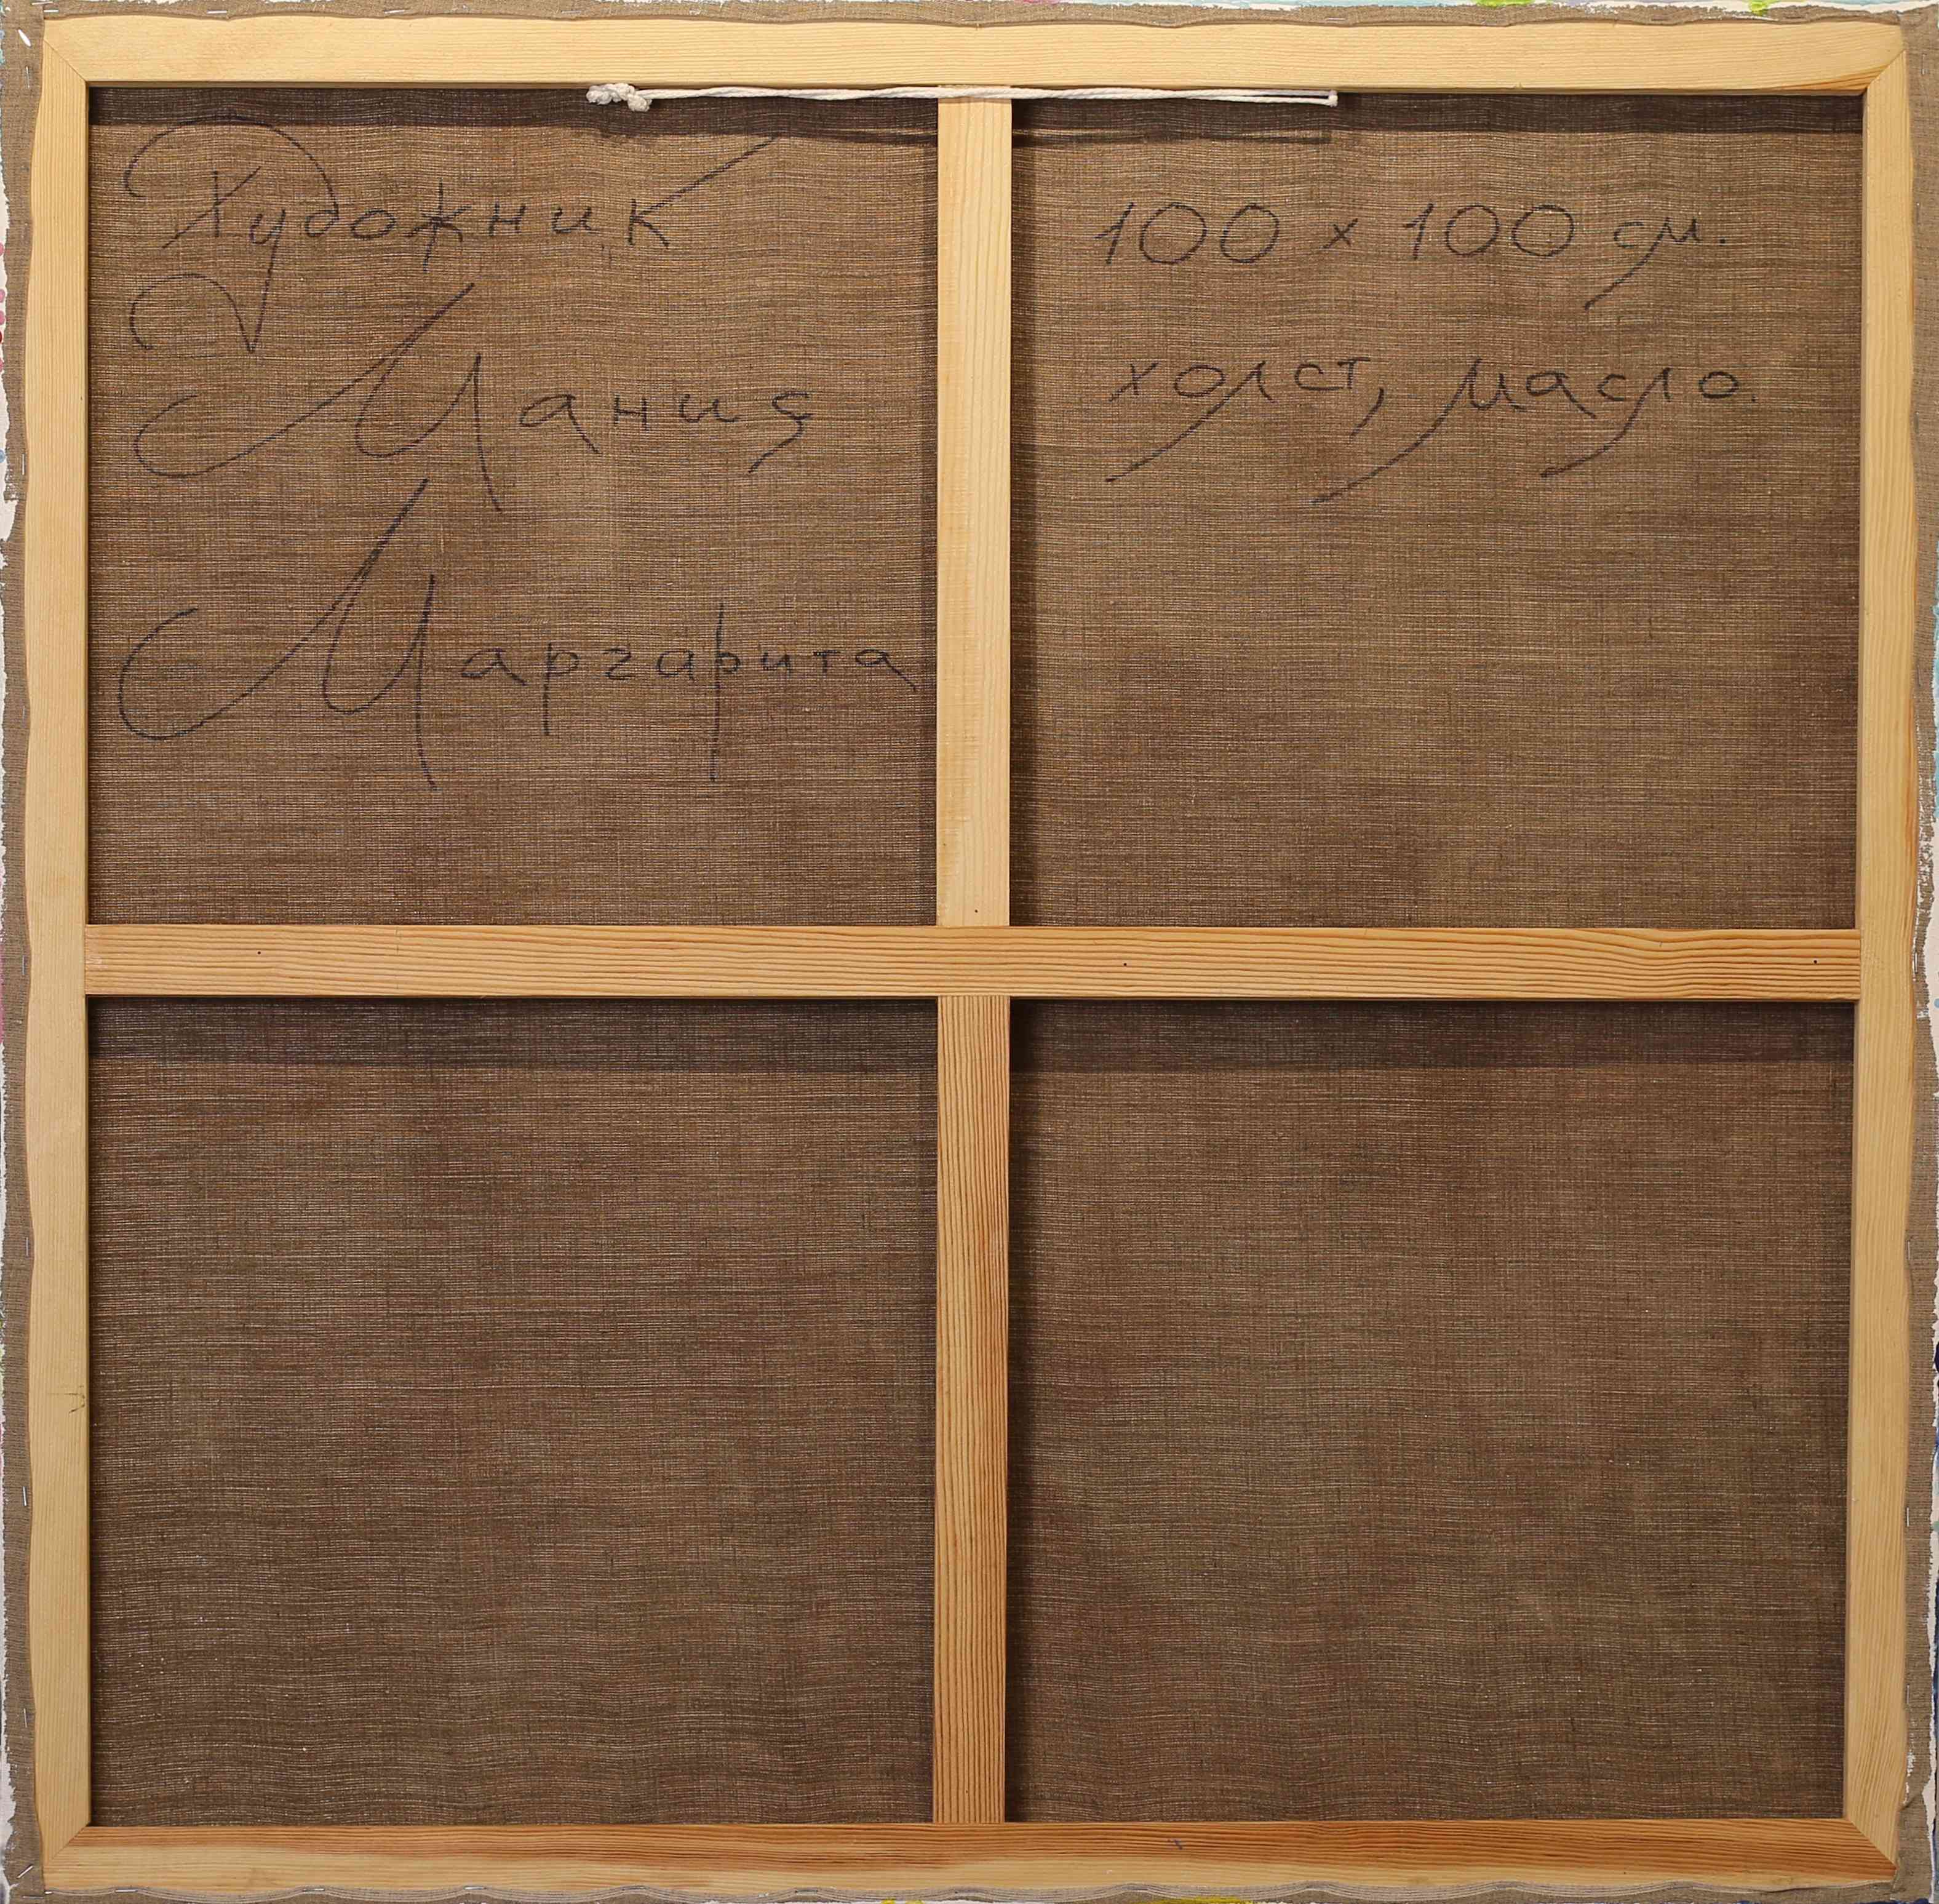 Художник
Мания
Маргарита
100 х 100 см.
холст, масло.